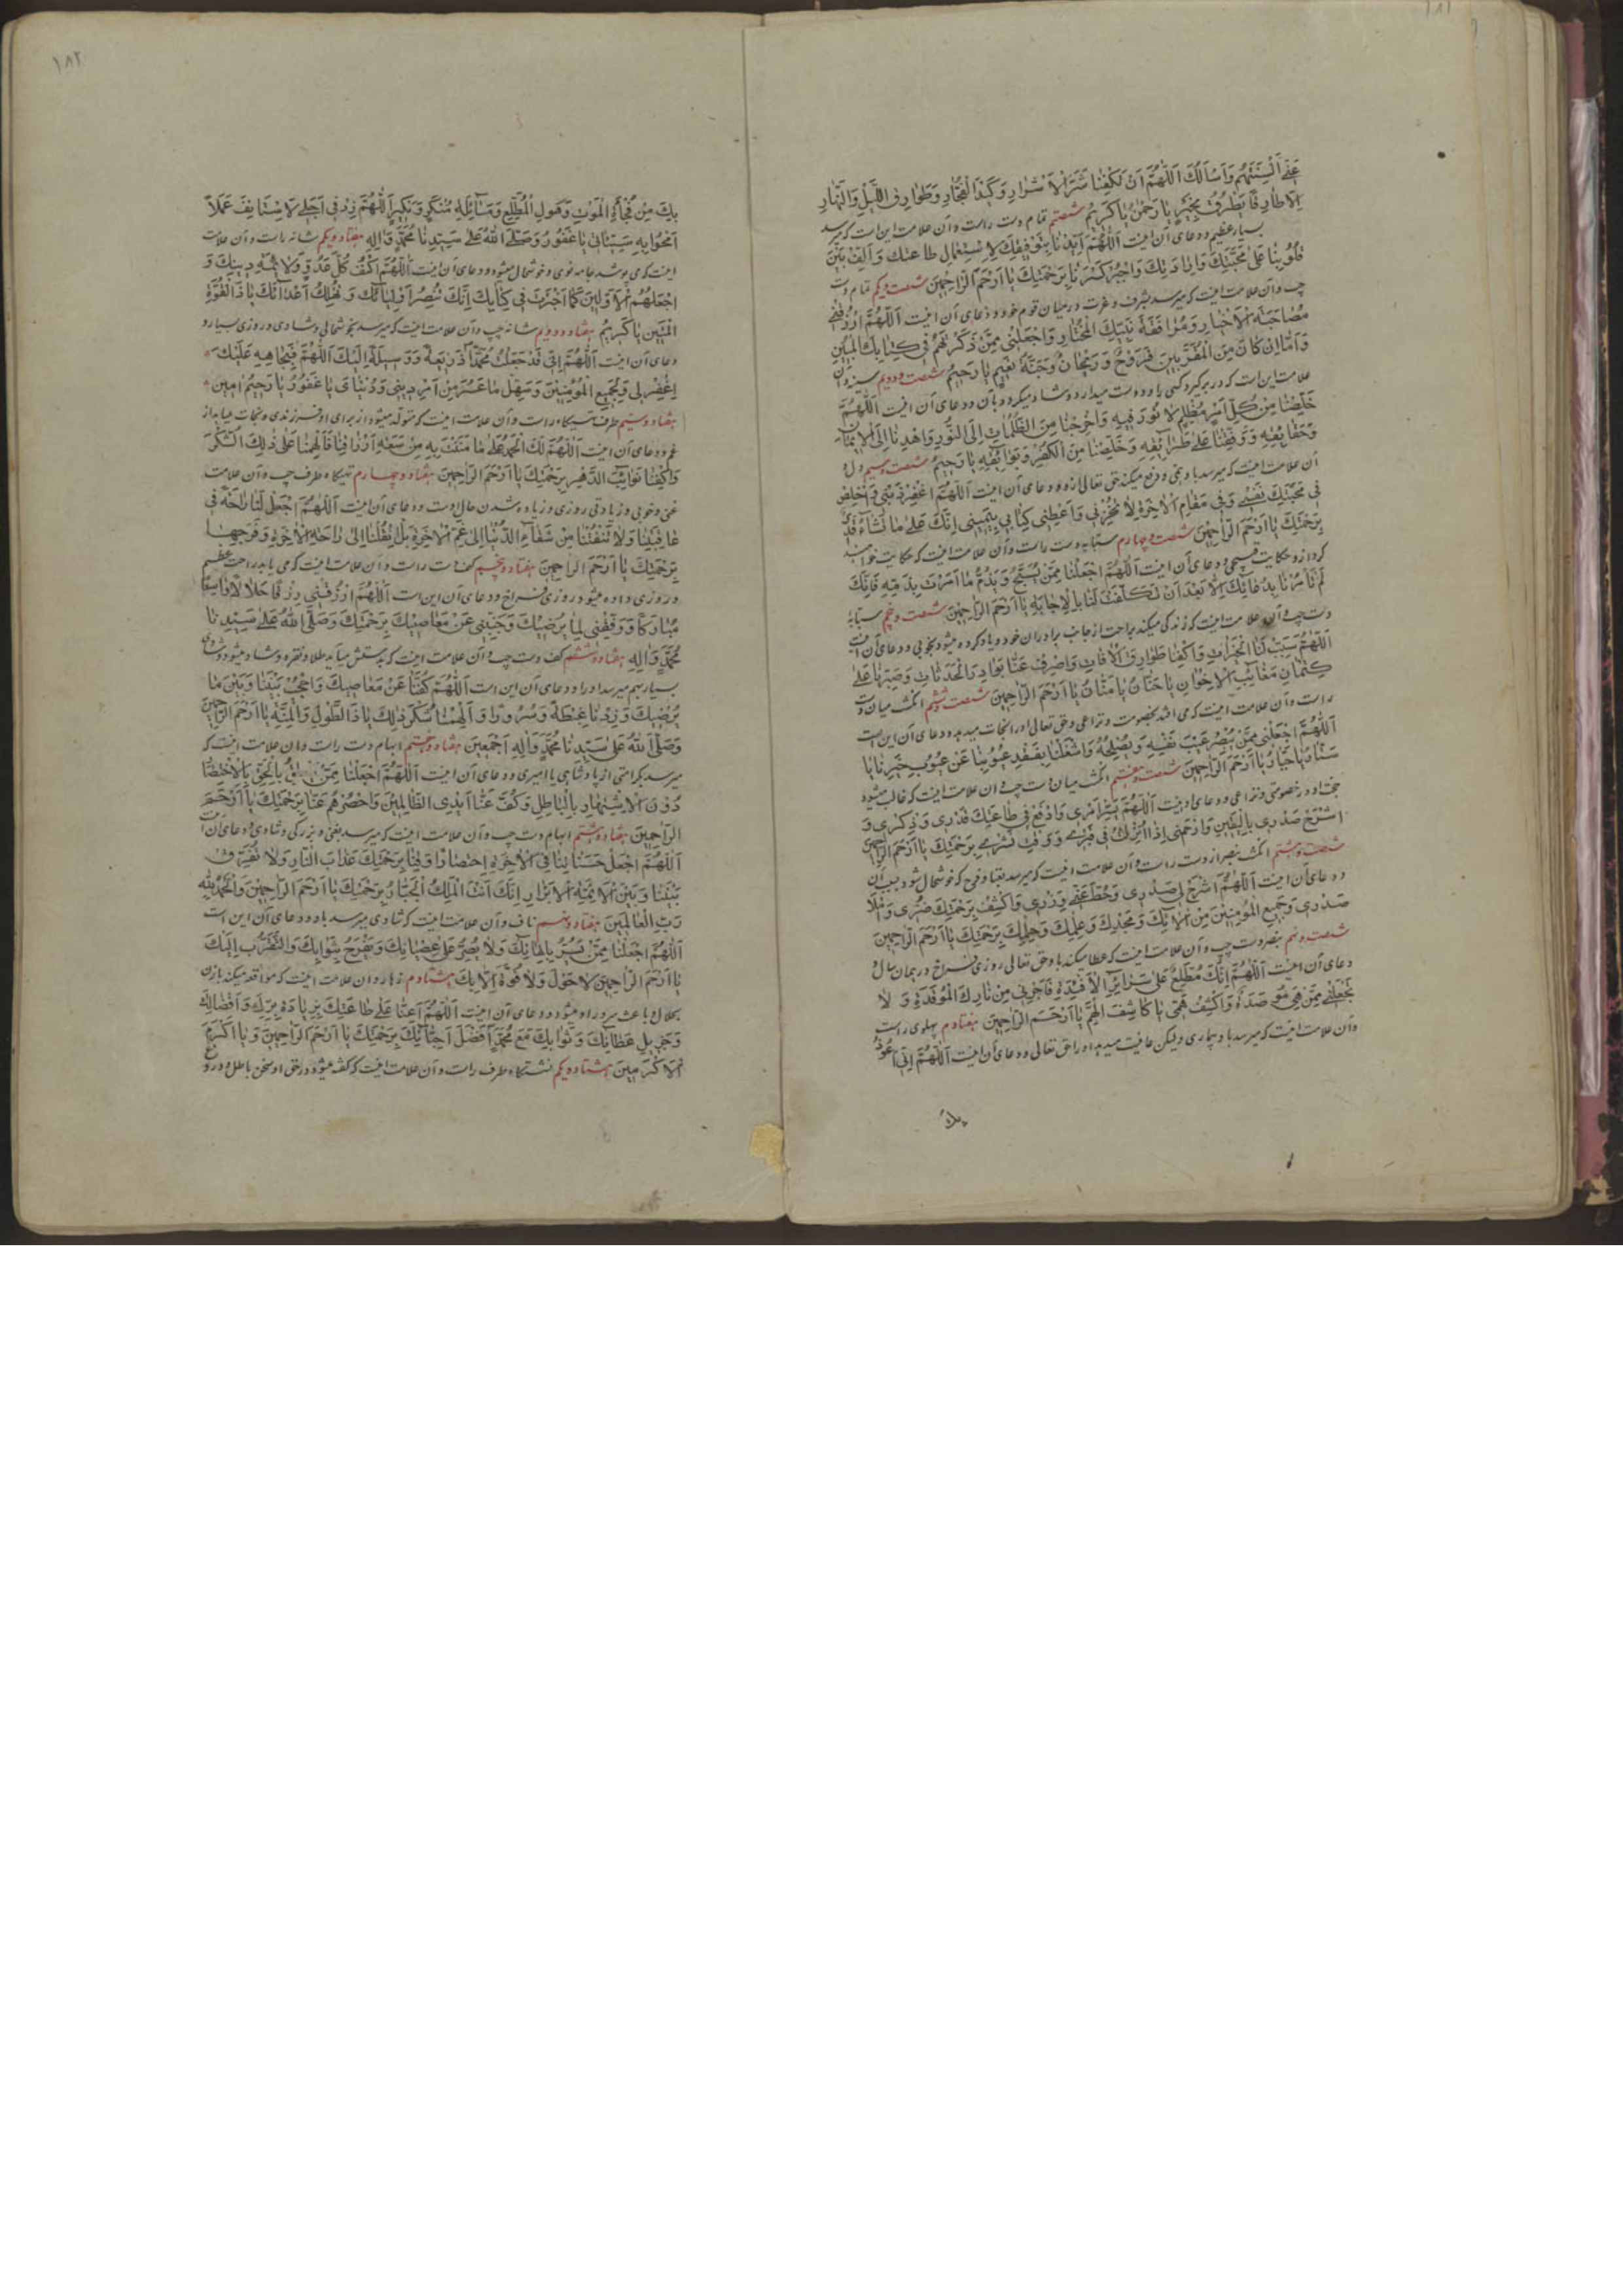 ۱۸۱
عَنّی اَلْسِنَتَهُمْ وَاَسْاَلُكَ اَللّهُمَّ اَنْ تَكْفِیَنا شَرَّ الْاَشْرارِ وَكَیْدَ الْفُجّارِ وَطَوارِقِ اللَّیْلِ وَالنَّهارِ
اِلّا طارِقًا یَطْرُقُ بِخَیْرٍ یا رَحْمٰنُ یا كَریمُ شصتم تمام دست راست و آن علامت این است که میرسد
بسیار عظیم و دعای آن اینست اَللّهُمَّ اَیِّدْنا بِتَوْفیقِكَ لِاسْتِعْمالِ طاعَتِكَ وَاَلِّفْ بَیْنَ
قُلُوبِنا عَلی مَحَبَّتِكَ وَاِرادَتِكَ وَاجْبُرْ كَسْرَنا بِرَحْمَتِكَ یا اَرْحَمَ الرّاحِمینَ شصت و یکم تمام دست
چپ و آن علامت اینست که میرسد بشرف و عزت در میان قوم خود و دعای آن اینست اَللّهُمَّ ارْزُقْنی
مُصاحَبَةَ الْاَخْیارِ وَمُوافَقَةَ نَبِیِّكَ الْمُخْتارِ وَاجْعَلْنی مِمَّنْ ذَكَرْتَهُمْ فی كِتابِكَ الْمُبینِ
وَاَمّا اِنْ كانَ مِنَ الْمُقَرَّبینَ فَرَوْحٌ وَرَیْحانٌ وَجَنَّةُ نَعیمٍ یا رَحیمُ شصت و دویم سینه و آن
علامت این است که در بر گیرد کسی را و دوست میدارد و شاد میگردد بآن و دعای آن اینست اَللّهُمَّ
خَلِّصْنا مِنْ كُلِّ اَمْرٍ مُظْلِمٍ لا نُورَ فیهِ وَاَخْرِجْنا مِنَ الظُّلُماتِ اِلَی النُّورِ وَاهْدِنا اِلَی الْایمانِ
وَحَقایِقِهِ وَوَفِّقْنا عَلی طَرایِقِهِ وَخَلِّصْنا مِنَ الْكُفْرِ وَبَوایِقِهِ یا رَحیمُ شصت و سیم دل و
آن علامت اینست که میرسد باو غمی و دفع میکند حق تعالی از او و دعای آن اینست اَللّهُمَّ اغْفِرْ ذَنْبی وَاَخْلِصْ
فی مَحَبَّتِكَ نَفْسی وَفی مَقامِ الْاخِرَةِ لا تُخْزِنی وَاَعْطِنی كِتابی بِیَمینی اِنَّكَ عَلی ما تَشاءُ قَدیرٌ
بِرَحْمَتِكَ یا اَرْحَمَ الرّاحِمینَ شصت و چهارم سبابه دست راست و آن علامت اینست که حکایت خواهند
کرد از و حکایت قبیحی و دعای آن اینست اَللّهُمَّ اجْعَلْنا مِمَّنْ یُسَبِّحُ وَیَذُمُّ ما اَمَرْتَ بِذَمِّهِ فَاِنَّكَ
لَمْ تَاْمُرْنا بِدُعائِكَ اِلّا بَعْدَ اَنْ تَكَلَّفْتَ لَنا بِالْاِجابَةِ یا اَرْحَمَ الرّاحِمینَ شصت و پنجم سبابهٔ
دست چپ و آن علامت اینست که زندگی میکند براحت از جانب برادران خود و یاد کرده میشود بخوبی و دعای آن اینست
اَللّهُمَّ سَبِّبْ لَنَا الْخَیْراتِ وَاكْفِنا طَوارِقَ الْافاتِ وَاصْرِفْ عَنّا بَوادِرَ الْحَدَثاتِ وَصَبِّرْنا عَلی
كِتْمانِ مَعایِبِ الْاِخْوانِ یا حَنّانُ یا مَنّانُ یا اَرْحَمَ الرّاحِمینَ شصت و ششم انگشت میان دست
راست و آن علامت اینست که می افتد بخصومت و نزاعی و حق تعالی او را نجات میدهد و دعای آن این است
اَللّهُمَّ اجْعَلْنی مِمَّنْ یُبْصِرُ عَیْبَ نَفْسِهِ وَیُصْلِحُهُ وَاشْغَلْنا بِتَفَقُّدِ عُیُوبِنا عَنْ عُیُوبِ غَیْرِنا یا
سَتّارُ یا جَبّارُ یا اَرْحَمَ الرّاحِمینَ شصت و هفتم انگشت میان دست چپ و آن علامت اینست که غالب میشود
حجت او در خصومتی و نزاعی و دعای او اینست اَللّهُمَّ یَسِّرْ اَمْری وَارْفَعْ فی طاعَتِكَ قَدْری وَذِكْری وَ
اشْرَحْ صَدْری بِالْیَقینِ وَارْحَمْنی اِذا اَنْزَلْتَ بی قَبْری بِرَحْمَتِكَ یا اَرْحَمَ الرّاحِمینَ
شصت و هشتم انگشت بنصر از دست راست و آن علامت اینست که میرسد بقبا و فرجی که خوشحال شود بسبب آن
و دعای آن اینست اَللّهُمَّ اشْرَحْ لی صَدْری وَحُطَّ عَنّی وِزْری وَاكْشِفْ بِرَحْمَتِكَ ضُرّی وَامْلَا
صَدْری وَجَمیعِ الْمُؤْمِنینَ مِنْ الائِكَ وَمَجْدِكَ وَعِلْمِكَ وَحِلْمِكَ بِرَحْمَتِكَ یا اَرْحَمَ الرّاحِمینَ
شصت و نهم بنصر دست چپ و آن علامت اینست که عطا میکند باو حق تعالی روزی فراخ در همان سال و
دعای آن اینست اَللّهُمَّ اِنَّكَ مُطَّلِعٌ عَلی سَرایِرِ الْاَفْئِدَةِ فَاَجِرْنی مِنْ نارِكَ الْمُوقَدَةِ وَ لا
تَجْعَلْنی مِمَّنْ هِیَ مُوصَدَةٌ وَاكْشِفْ هَمّی یا كاشِفَ الْهَمِّ یا اَرْحَمَ الرّاحِمینَ هفتادم پهلوی راست
و آن علامت اینست که میرسد باو بیماری ولیکن عافیت میدهد او را حق تعالی و دعای آن اینست اَللّهُمَّ اِنّی اَعُوذُ
بك
۱۸۲
بِكَ مِنْ فُجْأَةِ الْمَوْتِ وَهَوْلِ الْمُطَّلَعِ وَمَسْاَئِلَةِ مُنْكَرٍ وَنَكیرٍ اَللّهُمَّ زِدْ فی اَجَلی لِاَسْتَانِفَ عَمَلاً
اَمْحُوا بِهِ سَیِّئاتی یا غَفُورُ وَصَلَّی اللهُ عَلی سَیِّدِنا مُحَمَّدٍ وَالِهِ هفتاد و یکم شانه راست و آن علامت
اینست که می پوشد جامه نوی و خوشحال میشود و دعای آن اینست اَللّهُمَّ اكْفُفْ كُلَّ عَدُوٍّ وَلا بِدینِكَ وَ
اجْعَلْهُمُ الْاَوَّلینَ كَما اَخْبَرْتَ فی كِتابِكَ اِنَّكَ تَنْصُرُ اَوْلِیائَكَ وَ تُهْلِكُ اَعْدائَكَ یا ذَا الْقُوَّةِ
الْمَتینِ یا كَریمُ هفتاد و دویم شانه چپ و آن علامت اینست که میرسد بخوشحالی و شادی و روزی بسیار و
دعای آن اینست اَللّهُمَّ اِنّی قَدْ جَعَلْتُ مُحَمَّدًا ذَریعَةً وَوَسیلَةً اِلَیْكَ اَللّهُمَّ فَبِجاهِهِ عَلَیْكَ
اِغْفِرْ لی وَلِجَمیعِ الْمُؤْمِنینَ وَسَهِّلْ ما عَسُرَ مِنْ اَمْرِ دینی وَدُنْیایَ یا غَفُورُ یا رَحیمُ امین
هفتاد و سیم طرف تهیگاه راست و آن علامت اینست که متولد میشود از برای او فرزندی و نجات مییابد از
غم و دعای آن اینست اَللّهُمَّ لَكَ الْحَمْدُ عَلی ما مَنَنْتَ بِهِ مِنْ سَعَةِ اَرْزاقِنا فَاَلْهِمْنا عَلی ذلِكَ الشُّكْرَ
وَاكْفِنا نَوایِبَ الدَّهْرِ بِرَحْمَتِكَ یا اَرْحَمَ الرّاحِمینَ هفتاد و چهارم تهیگاه طرف چپ و آن علامت
غنی و خوبی و زیادتی روزی و زیاده شدن حال اوست و دعای آن اینست اَللّهُمَّ اجْعَلْ لَنا راحَةً فی
عاقِبَتِنا وَلا تَنْقُلْنا مِنْ شَقاءِ الدُّنْیا اِلی غَمِّ الْاخِرَةِ بَلِ انْقُلْنا اِلی راحَةِ الْاخِرَةِ وَفَرَجِها
بِرَحْمَتِكَ یا اَرْحَمَ الرّاحِمینَ هفتاد و پنجم کف دست راست و آن علامت اینست که می یابد راحت عظیم
و روزی داده میشود روزی فراخ و دعای آن این است اَللّهُمَّ ارْزُقْنی رِزْقًا حَلالًا واسِعًا
مُبارَكًا وَوَفِّقْنی لِما یُرْضیكَ وَجَنِّبْنی عَنْ مَعاصیكَ بِرَحْمَتِكَ وَصَلَّی اللهُ عَلی سَیِّدِنا
مُحَمَّدٍ وَالِهِ هفتاد و ششم کف دست چپ و آن علامت اینست که بدستش میآید طلا و نقره و شاد میشود و شادی
بسیار بهم میرسد او را و دعای آن این است اَللّهُمَّ كُفَّنا عَنْ مَعاصیكَ وَاجْمَعْ بَیْنَنا وَبَیْنَ ما
یُرْضیكَ وَزِدْنا غِبْطَةً وَسُرُورًا وَ اَلْهِمْنا شُكْرَ ذلِكَ یا ذَا الطَّوْلِ وَالْمِنَّةِ یا اَرْحَمَ الرّاحِمینَ
وَصَلَّی اللهُ عَلی سَیِّدِنا مُحَمَّدٍ وَالِهِ اَجْمَعینَ هفتاد و هفتم ابهام دست راست و آن علامت اینست که
میرسد بکرامتی از پادشاهی یا امیری و دعای آن اینست اَللّهُمَّ اجْعَلْنا مِمَّنْ بِالْحَقِّ
دُونَ الْاِشْتِهارِ بِالْباطِلِ وَكُفَّ عَنّا اَیْدِی الظّالِمینَ عَنّا بِرَحْمَتِكَ یا اَرْحَمَ
الرّاحِمینَ هفتاد و هشتم ابهام دست چپ و آن علامت اینست که میرسد بغنی و بزرگی و شادی و دعای آن اینست
اَللّهُمَّ اجْعَلْ حَسَناتِنا فِی الْاخِرَةِ وَقِنا بِرَحْمَتِكَ عَذابَ النّارِ وَلا تُفَرِّقْ
بَیْنَنا وَبَیْنَ الْاَئِمَّةِ الْاَبْرارِ اِنَّكَ اَنْتَ الْمَلِكُ الْجَبّارُ بِرَحْمَتِكَ یا اَرْحَمَ الرّاحِمینَ وَالْحَمْدُ لِلّهِ
رَبِّ الْعالَمینَ هفتاد و نهم ناف و آن علامت اینست که شادی میرسد باو و دعای آن این است
اَللّهُمَّ اجْعَلْنا مِمَّنْ یُسَرُّ وَلا یُصِرُّ عَلی عِصْیانِكَ وَیَفْرَحُ بِثَوابِكَ وَالتَّقَرُّبِ اِلَیْكَ
یا اَرْحَمَ الرّاحِمینَ لا حَوْلَ وَلا قُوَّةَ اِلّا بِكَ هشتادم زهار و آن علامت اینست که مواقعه میکند با زن
بحلال و باعث سرور او میشود و دعای آن اینست اَللّهُمَّ اَعِنّا عَلی طاعَتِكَ بِزِیادَةِ بِرِّكَ وَاَفْضالِكَ
وَجَزیلِ عَطائِكَ وَثَوابِكَ مَعَ مُحَمَّدٍ اَفْضَلِ اَحِبّائِكَ بِرَحْمَتِكَ یا اَرْحَمَ الرّاحِمینَ وَیا اَكْرَمَ
الْاَكْرَمینَ هشتاد و یکم نشستگاه طرف راست و آن علامت اینست که گفته میشود در حق او سخن باطل و دروغ